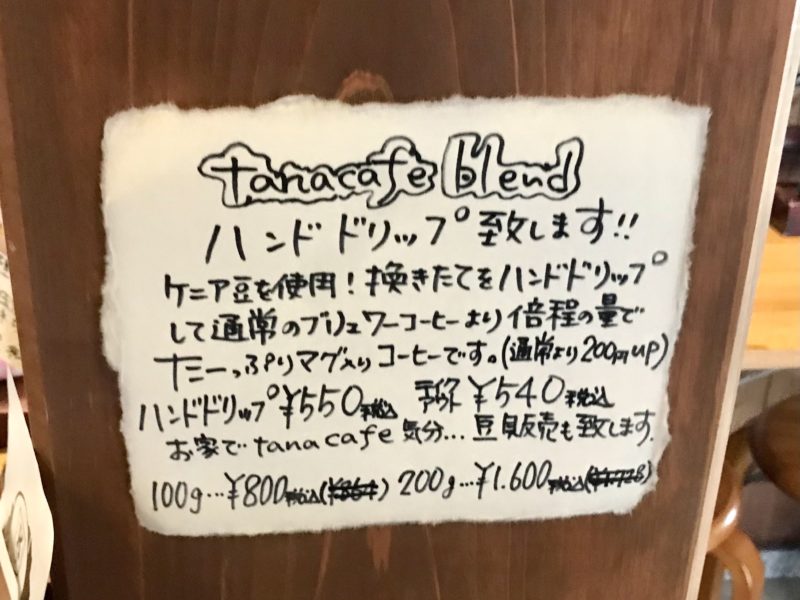 tanacafe blend
ハンドドリップ致します!!
ケニア豆を使用!換きたてをハンドドリップ
して通常のブリュワーコーヒーより倍程の量で
たーっぷりマグ入りコーヒーです。(通常より200円up)
ハンドドリップ¥550税込 テイクアウト¥540税込
お家でtanacafe気分...豆販売も致します.
100g...¥800税込(¥864) 200g...¥1.600税込(¥1.728)